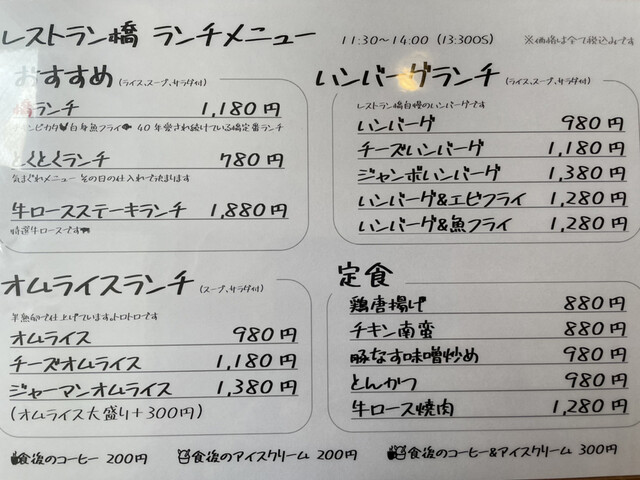 レストラン橋 ランチメニュー 11:30~14:00 (13:30OS) ※価格は全て税込みです
おすすめ (ライス、スープ、サラダ付)
橋ランチ 1,180円
チキンピカタ 白身魚フライ 40年愛され続けている橋定番ランチ
とくとくランチ 780円
気まぐれメニュー その日の仕入れで決まります
牛ロースステーキランチ 1,880円
特選牛ロースです
ハンバーグランチ (ライス、スープ、サラダ付)
レストラン橋自慢のハンバーグです
ハンバーグ 980円
チーズハンバーグ 1,180円
ジャンボハンバーグ 1,380円
ハンバーグ&エビフライ 1,280円
ハンバーグ&魚フライ 1,280円
オムライスランチ (スープ、サラダ付)
半熟卵で仕上げています。トロトロです
オムライス 980円
チーズオムライス 1,180円
ジャーマンオムライス 1,380円
(オムライス大盛り+300円)
定食
鶏唐揚げ 880円
チキン南蛮 880円
豚なす味噌炒め 980円
とんかつ 980円
牛ロース焼肉 1,280円
食後のコーヒー 200円 食後のアイスクリーム 200円 食後のコーヒー&アイスクリーム 300円